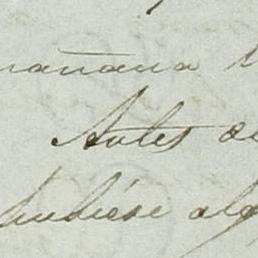 mañana
Antes de
hubiese alg